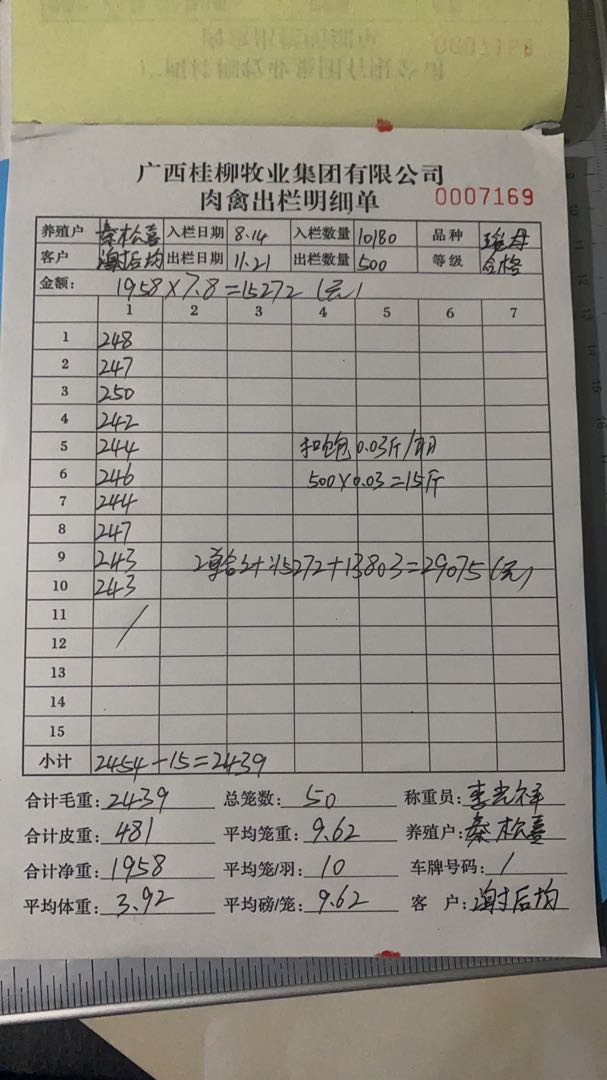 广西桂柳牧业集团有限公司
肉禽出栏明细单 0007169
养殖户 秦松喜 入栏日期 8.14 入栏数量 10180 品种 瑶母
客户 谢后均 出栏日期 11.21 出栏数量 500 等级 合格
金额: 1958×7.8=15272(元)
1 2 3 4 5 6 7
1 248
2 247
3 250
4 242
5 244 扣饱0.03斤/羽
6 246 500×0.03=15斤
7 244
8 247
9 243 2单合计:15272+13803=29075(元)
10 243
11
12
13
14
15
小计 2454-15=2439
合计毛重: 2439 总笼数: 50 称重员: 李光祥
合计皮重: 481 平均笼重: 9.62 养殖户: 秦松喜
合计净重: 1958 平均笼/羽: 10 车牌号码: /
平均体重: 3.92 平均磅/笼: 9.62 客 户: 谢后均